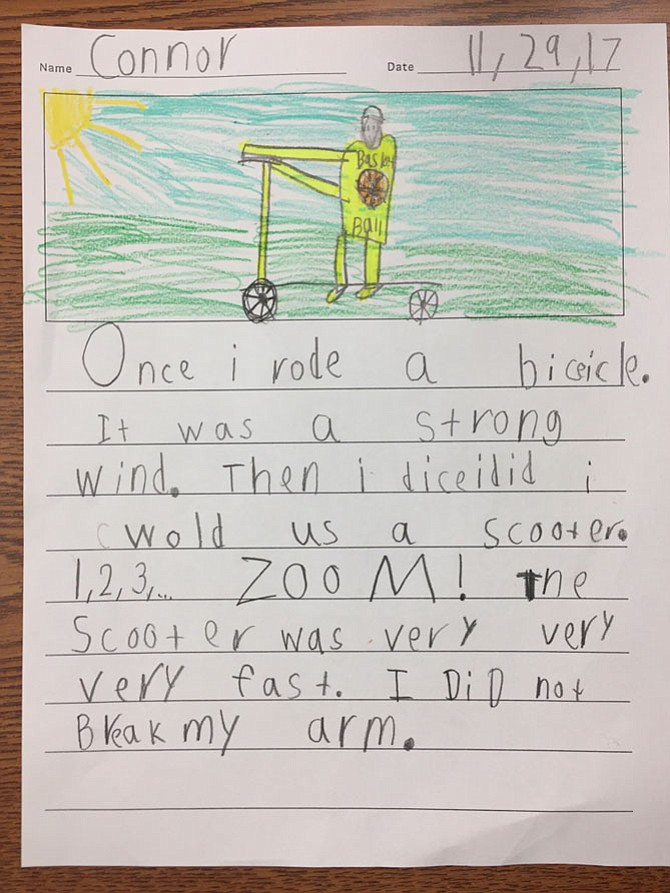 Name Connor Date 11,29,17
Basket
Ball
Once i rode a biceicle.
It was a strong
wind. Then i diceidid i
wold us a scooter.
1,2,3,... ZOOM! The
Scooter was very very
very fast. I DiD not
Break my arm.